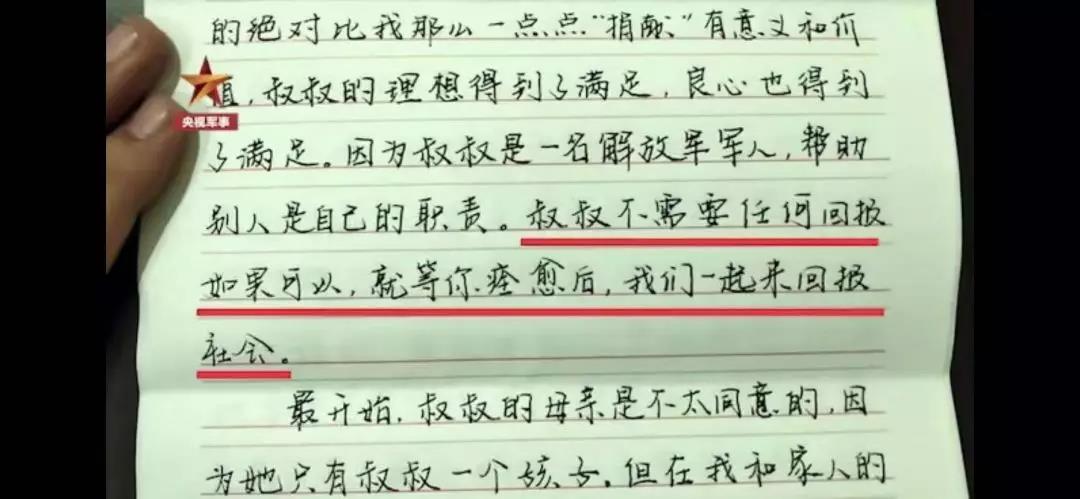 的绝对比我那么一点点“捐献”有意义和价
值,叔叔的理想得到了满足,良心也得到
央视军事
了满足。因为叔叔是一名解放军军人,帮助
别人是自己的职责。叔叔不需要任何回报
如果可以,就等你痊愈后,我们一起来回报
社会。
最开始,叔叔的母亲是不太同意的,因
为她只有叔叔一个孩子。但在我和家人的